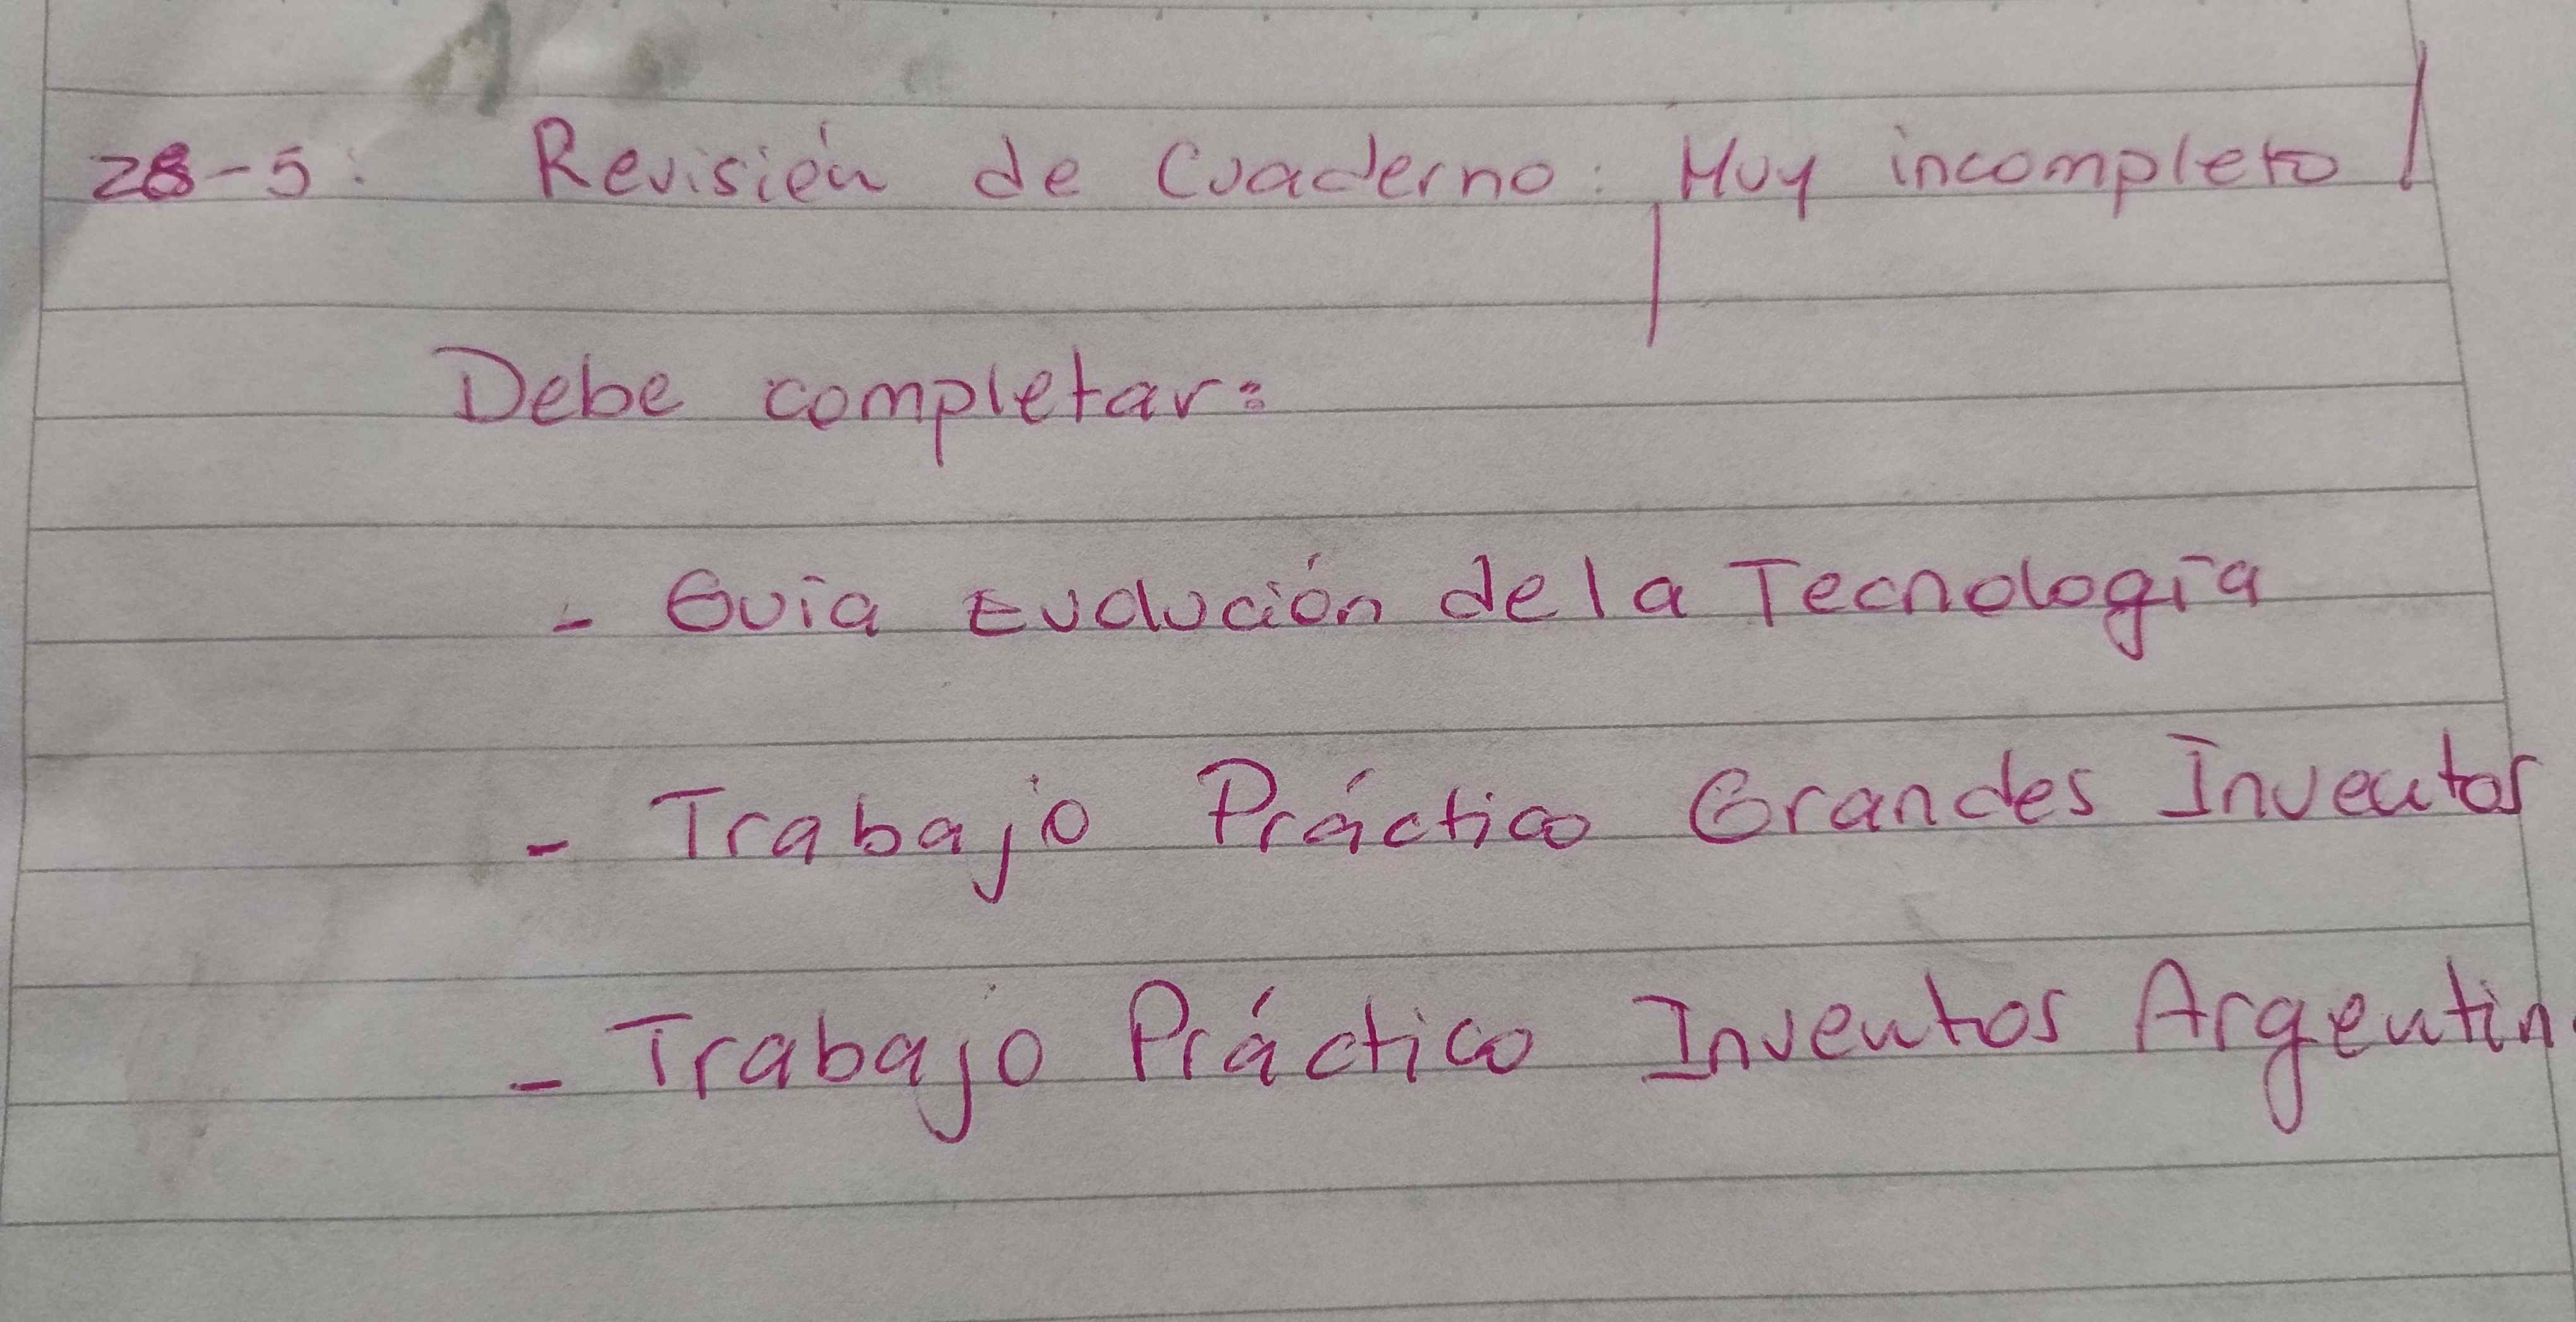 28-5: Revisión de Cuaderno: ¡Muy incompleto!
Debe completar:
- Guía Evolución de la Tecnología
- Trabajo Práctico Grandes Inventos
- Trabajo Práctico Inventos Argentin